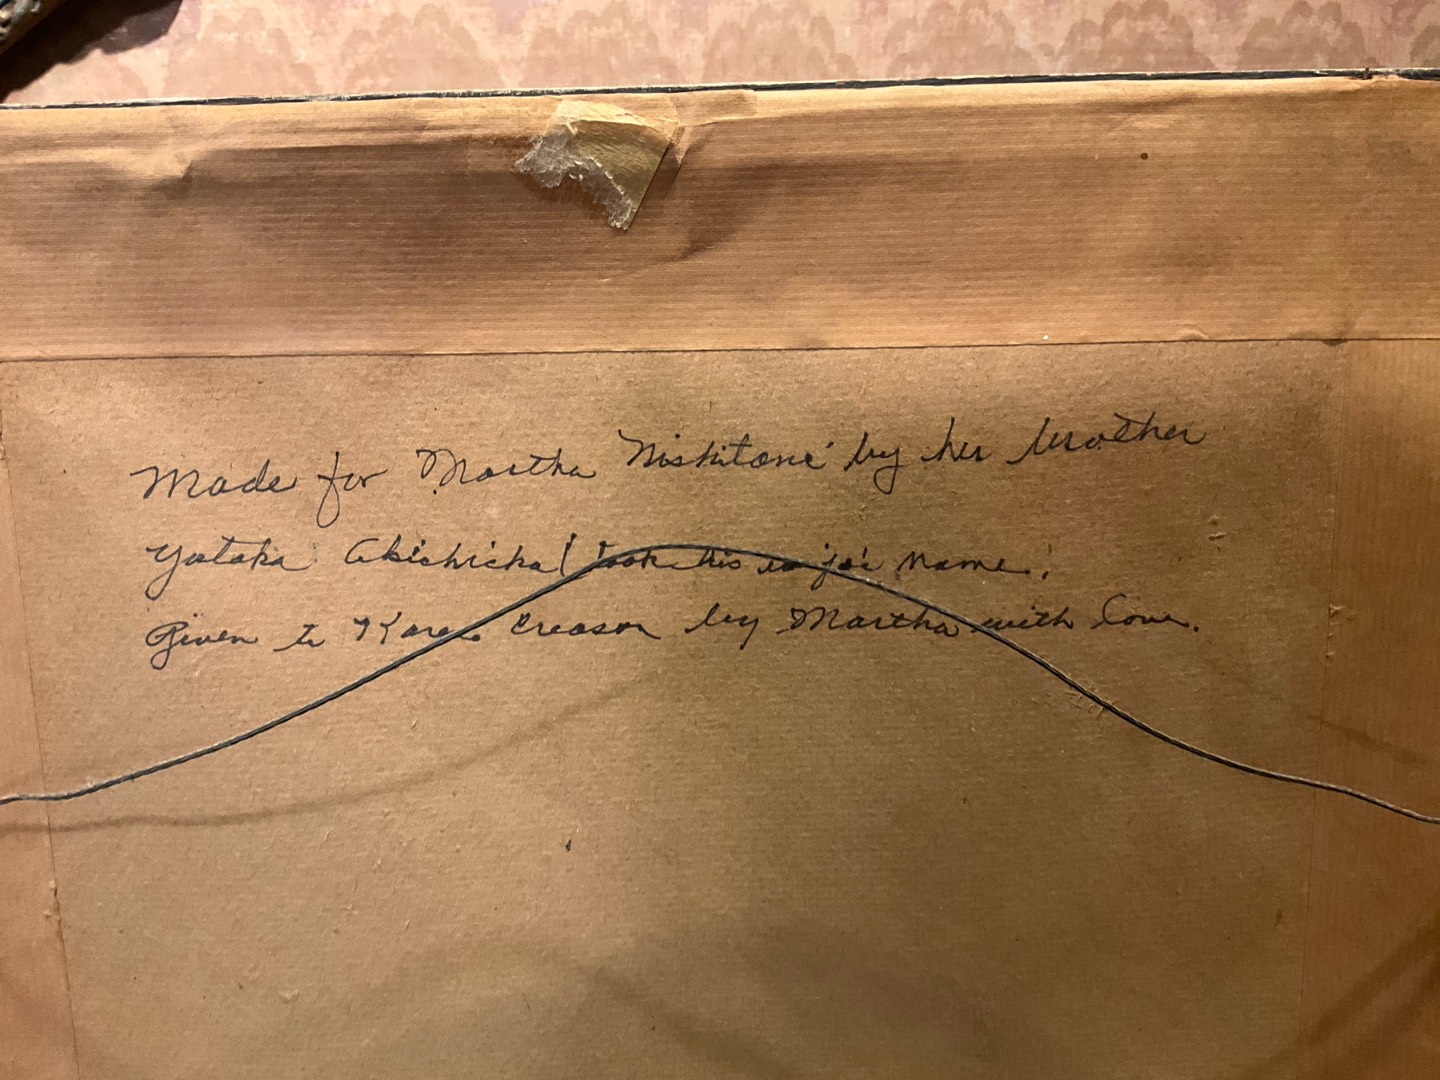 Made for Martha Nishitani by her brother
Yutaka Akichika (took his in
Given to Karen Creason by Martha with love.